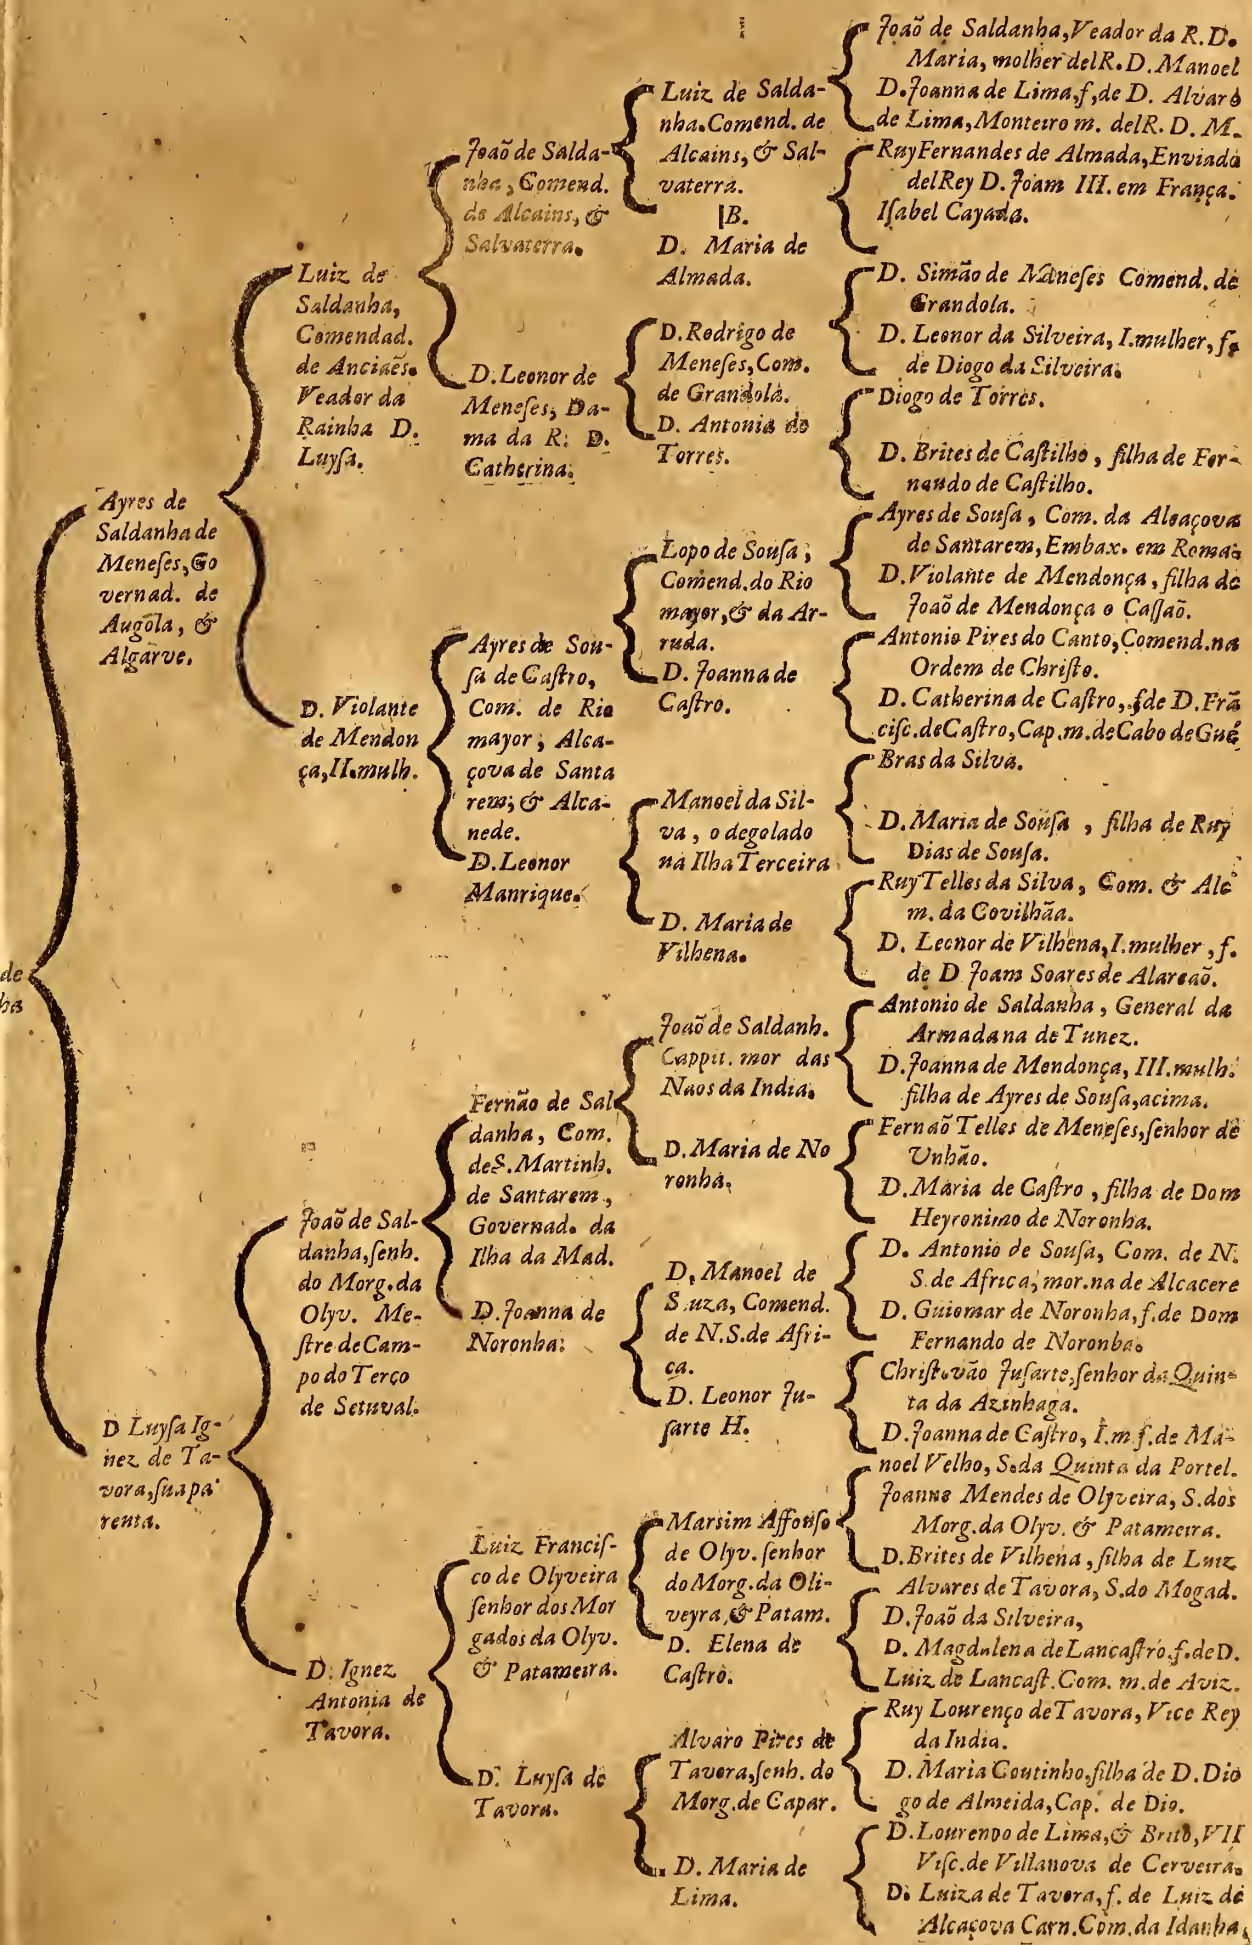 de
ha
Ayres de
Saldanha de
Meneſes, Go
vernad. de
Augola, &
Algarve.
D Luyſa Ig-
nez de Ta-
vora, ſua pa
renta.
Luiz de
Saldanha,
Comendad.
de Anciaẽs.
Veador da
Rainha D.
Luyſa.
D. Violante
de Mendon
ça, II. mulh.
Joaõ de Sal-
danha, ſenh.
do Morg. da
Olyv. Me-
ſtre de Cam-
po do Terço
de Setuval.
D. Ignez
Antonia de
Tavora.
Joaõ de Salda-
nha, Comend.
de Alcains, &
Salvaterra.
D. Leonor de
Meneſes, Da-
ma da R. D.
Catherina.
Ayres de Sou-
ſa de Caſtro,
Com. de Rio
mayor, Alca-
çova de Santa
rem, & Alca-
nede.
D. Leonor
Manrique.
Fernão de Sal
danha, Com.
de S. Martinh.
de Santarem,
Governad. da
Ilha da Mad.
D. Joanna de
Noronha.
Luiz Franciſ-
co de Olyveira
ſenhor dos Mor
gados da Olyv.
& Patameira.
D. Luyſa de
Tavora.
Luiz de Salda-
nha. Comend. de
Alcains, & Sal-
vaterra.
B.
D. Maria de
Almada.
D. Rodrigo de
Meneſes, Com.
de Grandola.
D. Antonia de
Torres.
Lopo de Souſa,
Comend. do Rio
mayor, & da Ar-
ruda.
D. Joanna de
Caſtro.
Manoel da Sil-
va, o degolado
na Ilha Terceira
D. Maria de
Vilhena.
Joaõ de Saldanh.
Cappit. mor das
Naos da India.
D. Maria de No
ronha.
D. Manoel de
S uza, Comend.
de N. S. de Afri-
ca.
D. Leonor Ju-
ſarte H.
Marsim Affonſo
de Olyv. ſenhor
do Morg. da Oli-
veyra, & Patam.
D. Elena de
Caſtro.
Alvaro Pires de
Tavora, ſenh. do
Morg. de Capar.
D. Maria de
Lima.
Joaõ de Saldanha, Veador da R. D.
Maria, molher del R. D. Manoel
D. Joanna de Lima, f, de D. Alvaro
de Lima, Monteiro m. del R. D. M.
Ruy Fernandes de Almada, Enviado
del Rey D. Joam III. em França.
Iſabel Cayada.
D. Simão de Meneſes Comend. de
Grandola.
D. Leonor da Silveira, I. mulher, f.
de Diogo da Silveira.
Diogo de Torres.
D. Brites de Caſtilho, filha de Fer-
naudo de Caſtilho.
Ayres de Souſa, Com. da Alcaçova
de Santarem, Embax. em Roma.
D. Violante de Mendonça, filha de
Joaõ de Mendonça o Caſſaõ.
Antonio Pires do Canto, Comend. na
Ordem de Chriſto.
D. Catherina de Caſtro, f de D. Frã
ciſc. de Caſtro, Cap. m. de Cabo de Gué
Bras da Silva.
D. Maria de Souſa, filha de Ruy
Dias de Souſa.
Ruy Telles da Silva, Com. & Alc
m. da Covilhãa.
D. Leonor de Vilhena, I. mulher, f.
de D Joam Soares de Alarcaõ.
Antonio de Saldanha, General da
Armada na de Tunez.
D. Joanna de Mendonça, III. mulh.
filha de Ayres de Souſa, acima.
Fernaõ Telles de Meneſes, ſenhor de
Unhão.
D. Maria de Caſtro, filha de Dom
Heyronimo de Noronha.
D. Antonio de Souſa, Com. de N.
S. de Africa, mor. na de Alcacere
D. Guiomar de Noronha, f. de Dom
Fernando de Noronha.
Chriſtovão Juſarte, ſenhor da Quin-
ta da Azinhaga.
D. Joanna de Caſtro, I. m f. de Ma-
noel Velho, S. da Quinta da Portel.
Joanne Mendes de Olyveira, S. dos
Morg. da Olyv. & Patameira.
D. Brites de Vilhena, filha de Luiz
Alvares de Tavora, S. do Mogad.
D. Joaõ da Silveira,
D. Magdalena de Lancaſtro, f. de D.
Luiz de Lancaſt. Com. m. de Aviz.
Ruy Lourenço de Tavora, Vice Rey
da India.
D. Maria Coutinho, filha de D. Dio
go de Almeida, Cap. de Dio.
D. Lourenvo de Lima, & Brito, VII
Viſc. de Villanova de Cerveira.
D. Luiza de Tavora, f. de Luiz de
Alcaçova Carn. Com. da Idanha.